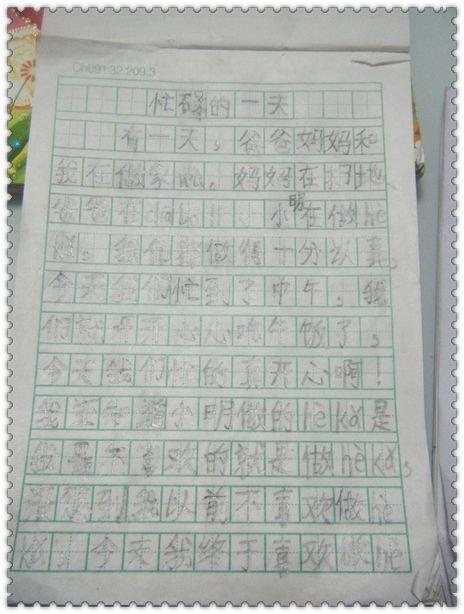 Ch091.32.209.3
忙碌的一天
有一天,爸爸妈妈和
我在做家wu。妈妈在扫地,
爸爸在 小明在做hè
做得十分认真。
今天我们忙到了中午。我
们就开开心心吃午饭了,
今天我们忙的真开心啊!
小明做的hè kǎ是
不喜欢的就是做hè kǎ,
到我以前不喜欢做hè
今天我终于喜欢做hè